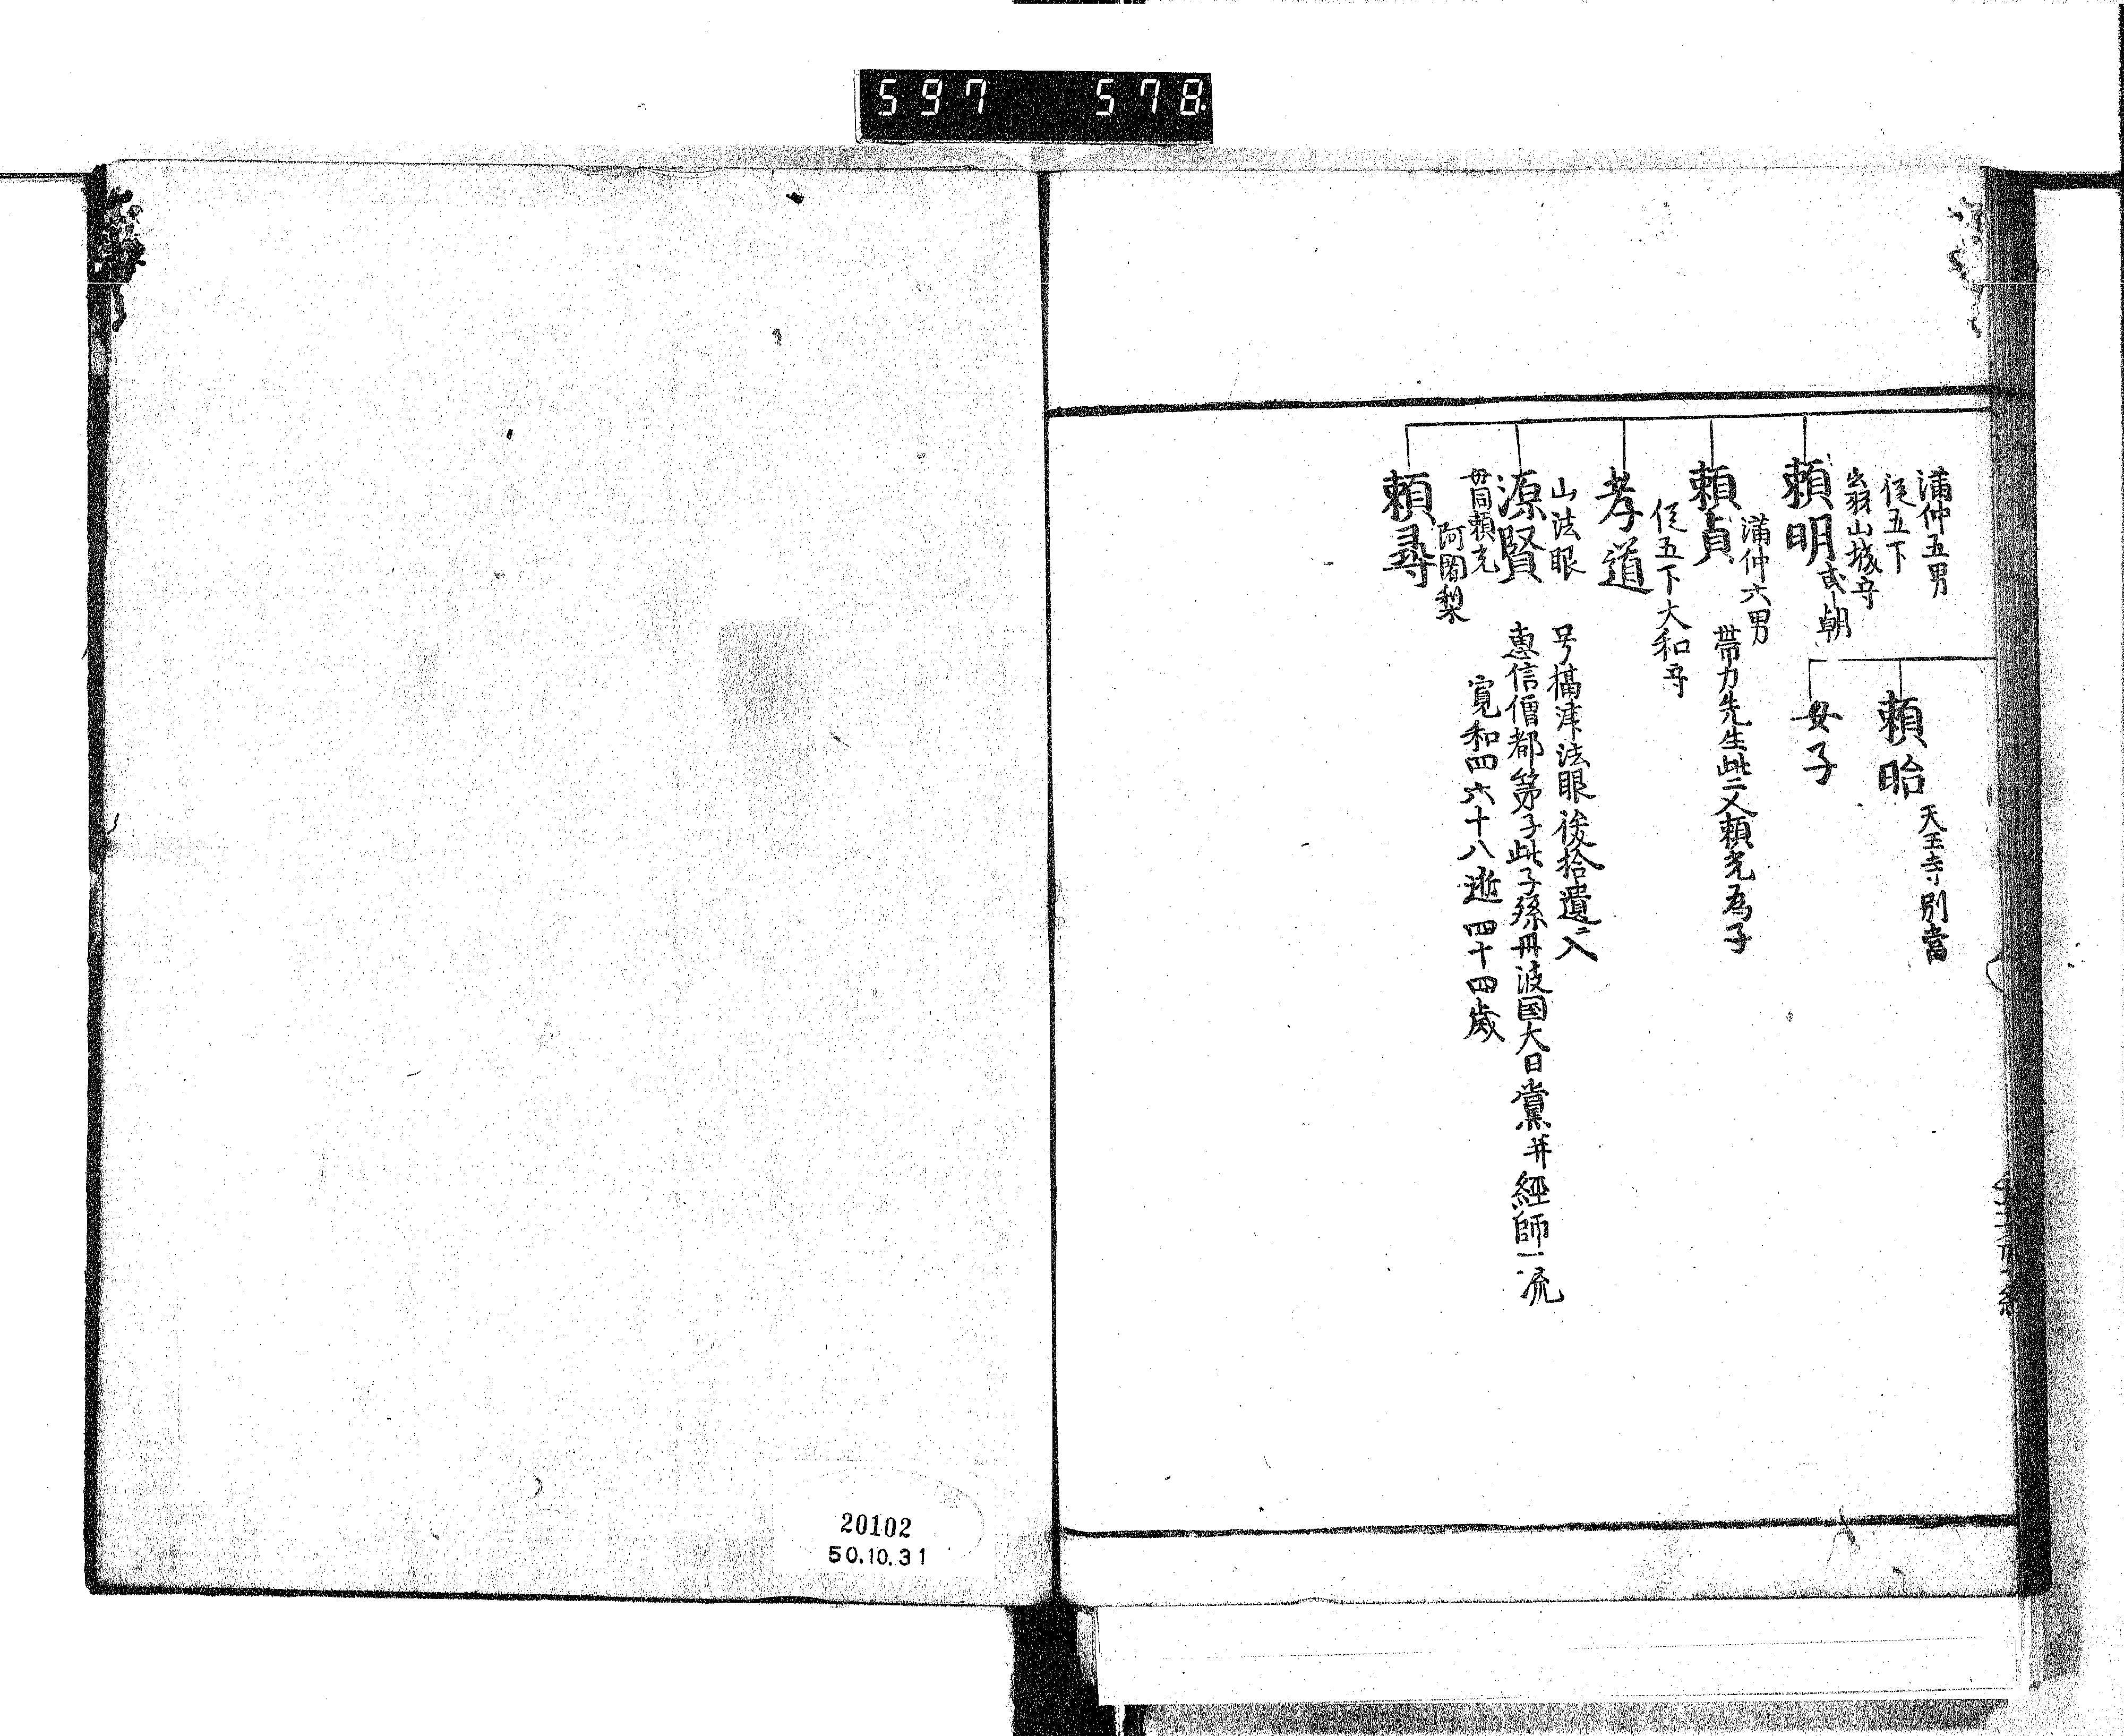 597 578
満仲五男
従五下
山城守
頼明 或朝
頼昭 天王寺別當
女子
満仲六男
頼貞 帯刀先生此二人頼光為子
従五下大和守
孝道
山法眼 号摂津法眼後拾遺二入
源賢 惠信僧都第子此子孫丹波国大日黨并經師一流
母同頼光 寛和四六十八逝四十四歳
阿闍梨
頼尋
20102
50.10.31